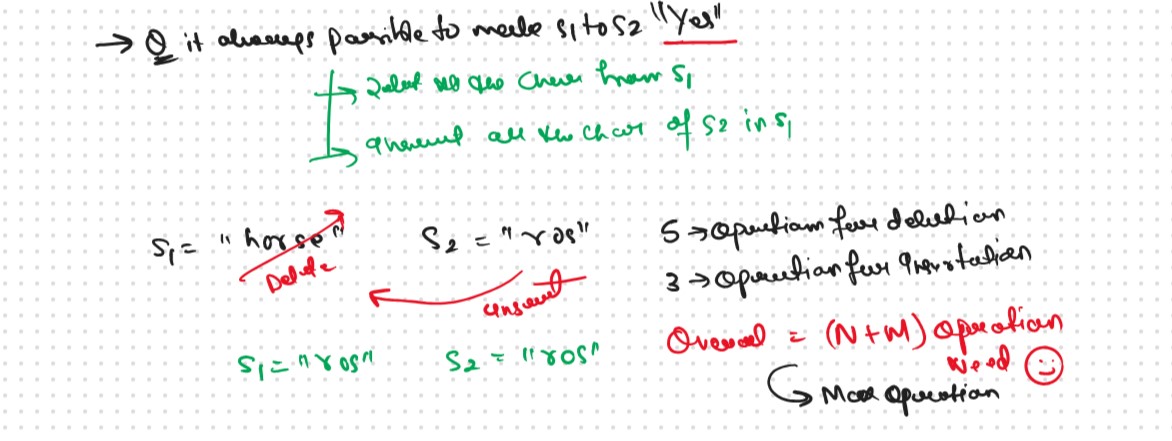 → Q it always possible to make s1 to s2 "Yes"
→ Delet all the char from s1
→ Insert all the char of s2 in s1
S1 = "horse"
Delete
S2 = "ros"
insert
5 → operation for deletion
3 → operation for
S1 = "ros"
S2 = "ros"
Overall = (N+M) operation
Need
Max operation